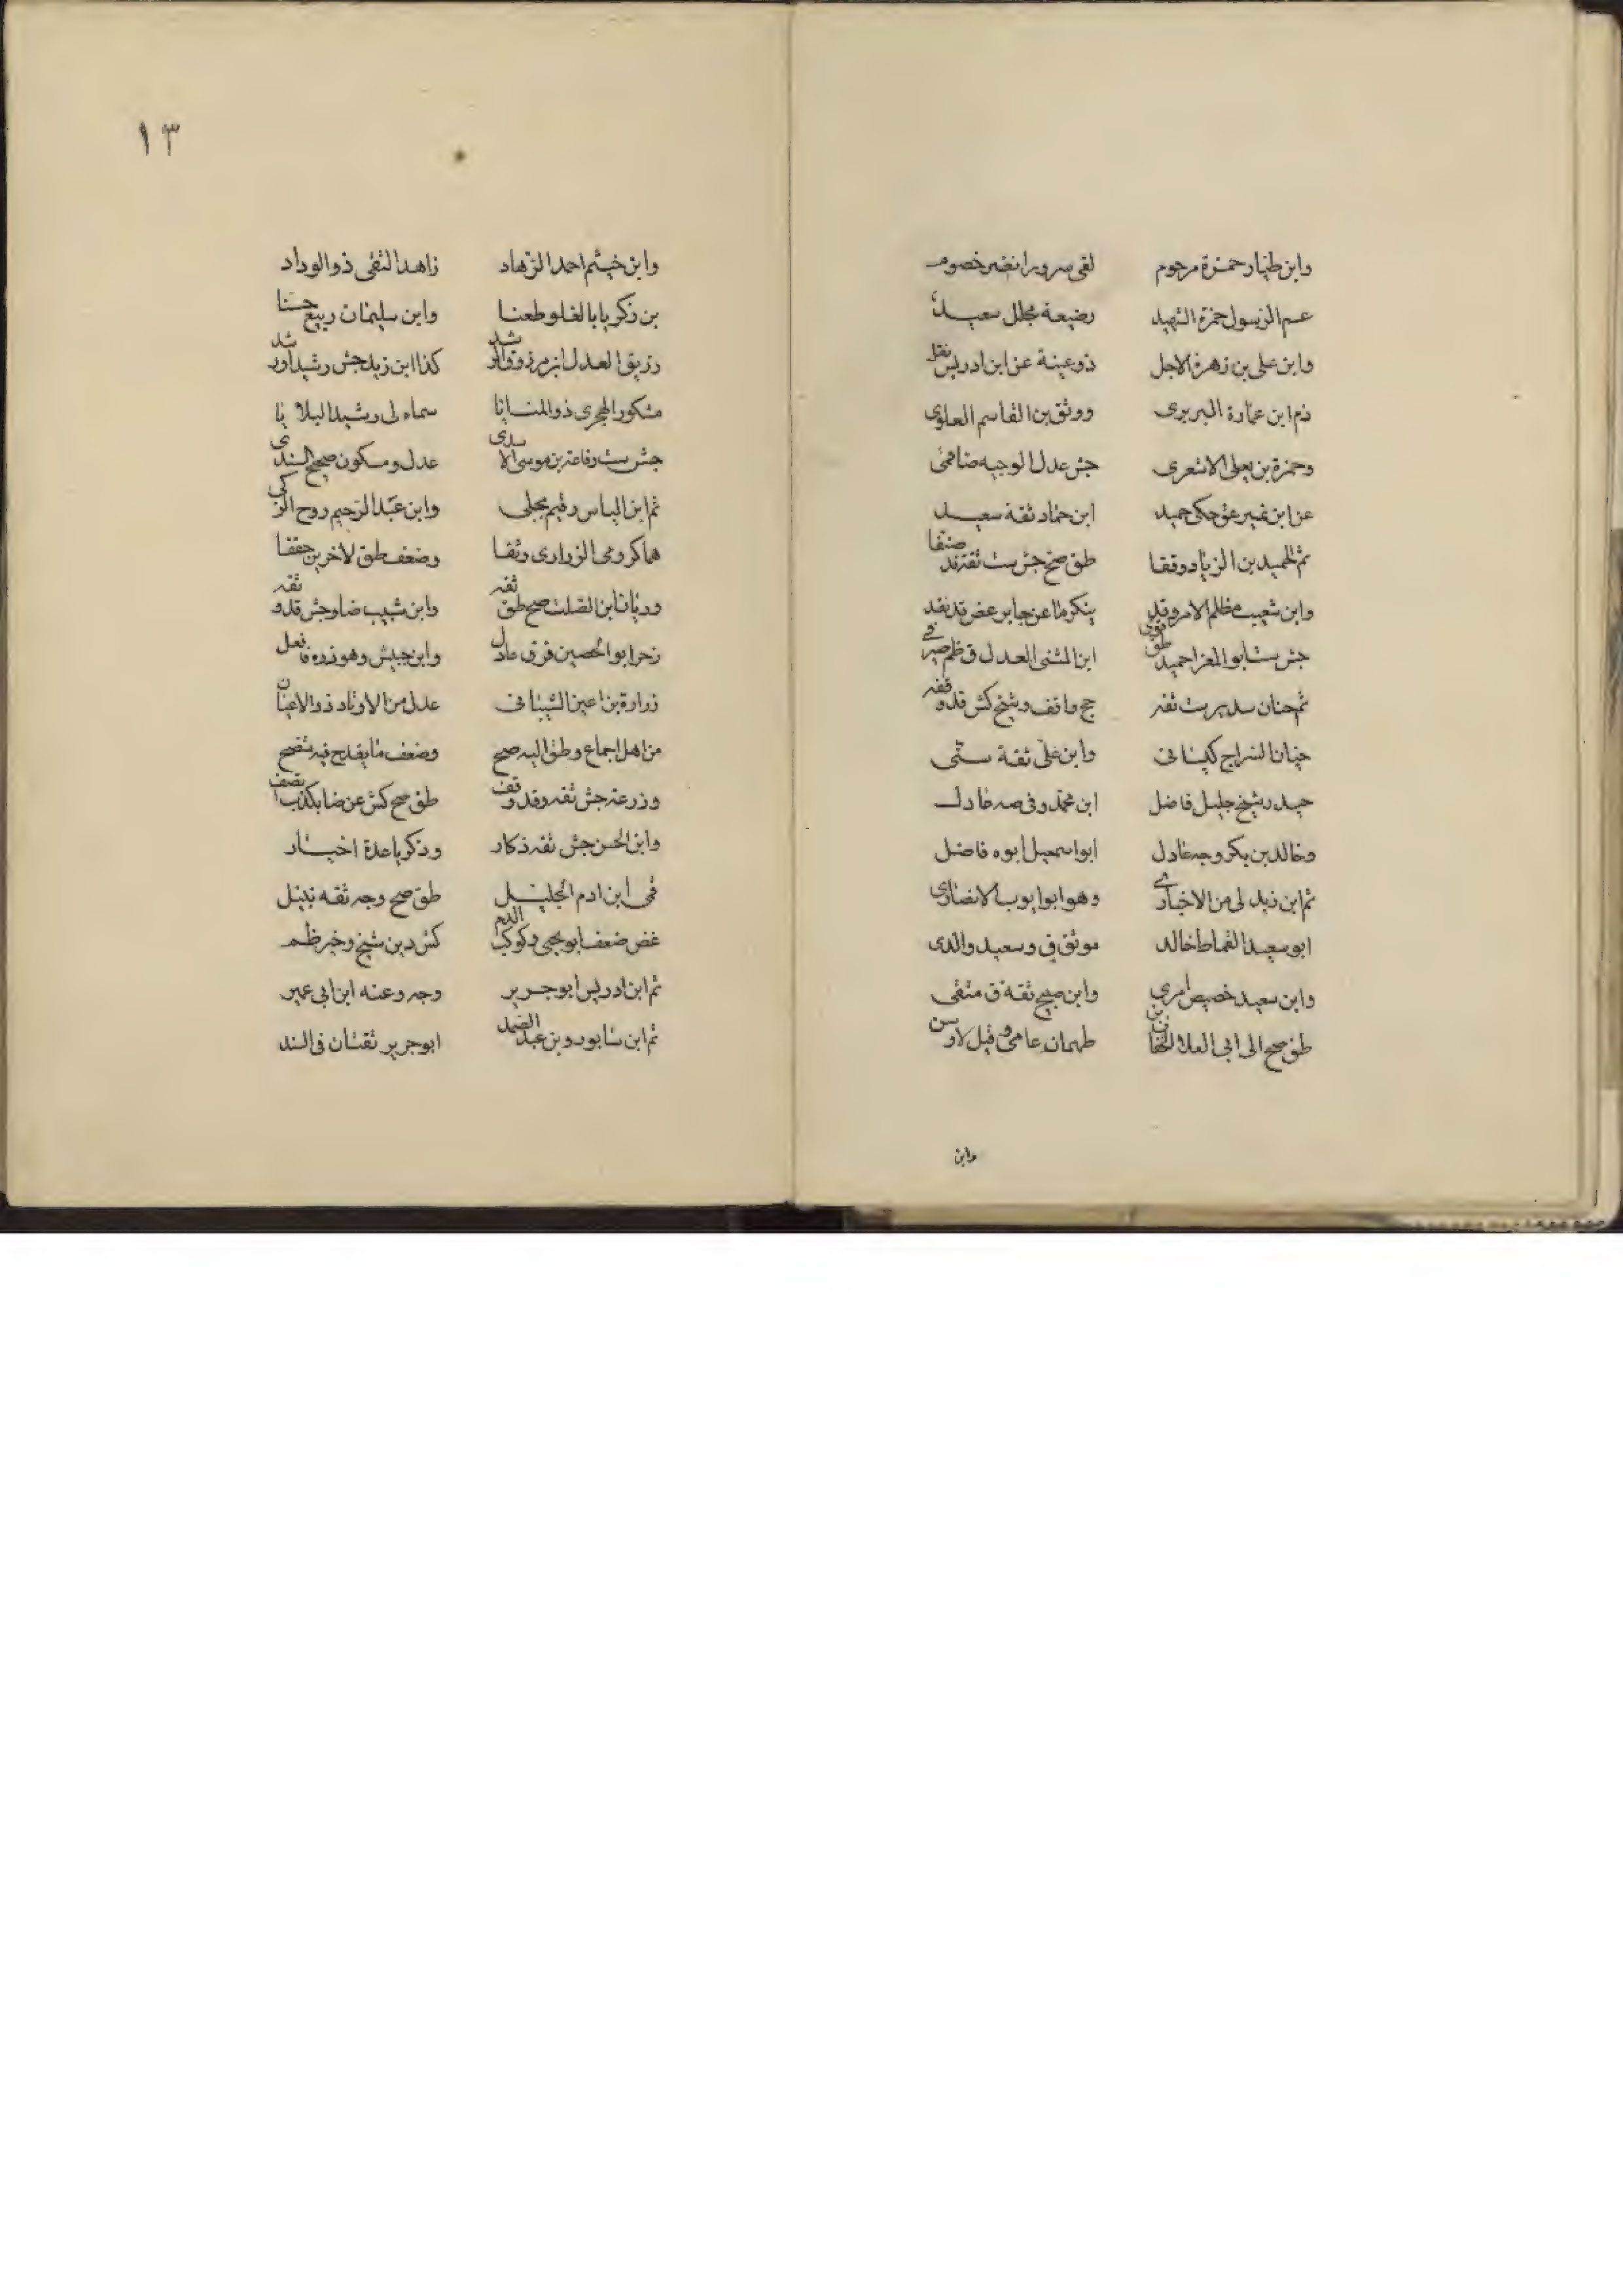 وابن طيار حمزة مرحوم لقى سرورا نضر خصوم
عم الرسول حمزة الشهيد رضيعة مجلل سعيد
وابن على بن زهرة الاجل ذو عينة عن ابن ادريس نقل
ذم ابن عمارة البربرى ووثق بن القاسم العلوى
وحمزة بن يعلى الاشعرى جش عدل الوجيه ضا
عن ابن نمير عق حكى حميد ابن حماد ثقة سعيد
ثم الحميد بن الزياد وقفا طق صح جش ست ثقة قد صنفا
وابن شعيب مظلم الامر وقد ينكر ما عن جابر غض قد نقد
جش ست ابو المغرا حميد ابن المثنى العدل ق ظم
ثم حنان سدير ست ثقه جج واقف وشيخ كش قد وقفه
حيان السراج كيسانى وابن على ثقة ستى
حيدر شيخ جليل فاضل ابن محمد وفى صه عادل
وخالد بن بكر وجه عادل ابو اسمعيل ابوه فاضل
ثم ابن زيد لى من الاخيار وهو ابو ايوب الانصارى
ابو سعيد القماط خالد موثق ق وسعيد والدى
وابن سعيد خصيص امرى وابن صبيح ثقة ق متقى
طق صح الى ابى العلا الخفاف طهمان عامى وقيل
وابن
١٣
وابن خيثم احد الزهاد زاهد التقى ذو الوداد
بن زكريا بالغلو طعنا وابن سليمان ربيع حسنا
رزيق العدل ابن مرزوق كذا ابن زيد جش رشيد
مشكور الهجرى ذو المنايا سماه لى رشيد البلايا
جش ست رفاعة بن موسى الاسدى عدل ومسكون صحيح السندى
ثم ابن الياس رقيم بجلى وابن عبد الرحيم روح الزكى
هما كرومى الزرارى وثقا وضعف طق لاخرين حققا
وريان ابن الصلت صح طق ثقه وابن شبيب ضا وجش قد وثقه
زحر ابو الحصين ق عادل وابن حبيش وهو زره فا
زرارة بن اعين الشيبانى عدل من الاوتاد ذو الاعيان
من اهل اجماع وطق اليه صح وضعف ما يقدح فيه تضح
وزرعة جش ثقه وقد وقف طق صح كش عن ضا بكذب
وابن الحسن جش ثقه ذكار وزكريا عدة اخيار
فى ابن ادم الجليل طق صح وجه ثقه نبيل
غض ضعف ابو يحيى وكوكب الدم كش دين شيخ وخير ظم
ثم ابن ادريس ابو جرير وجه وعنه ابن ابى عمير
ثم ابن سابور وبن عبد الصمد ابو جرير ثقتان فى السند